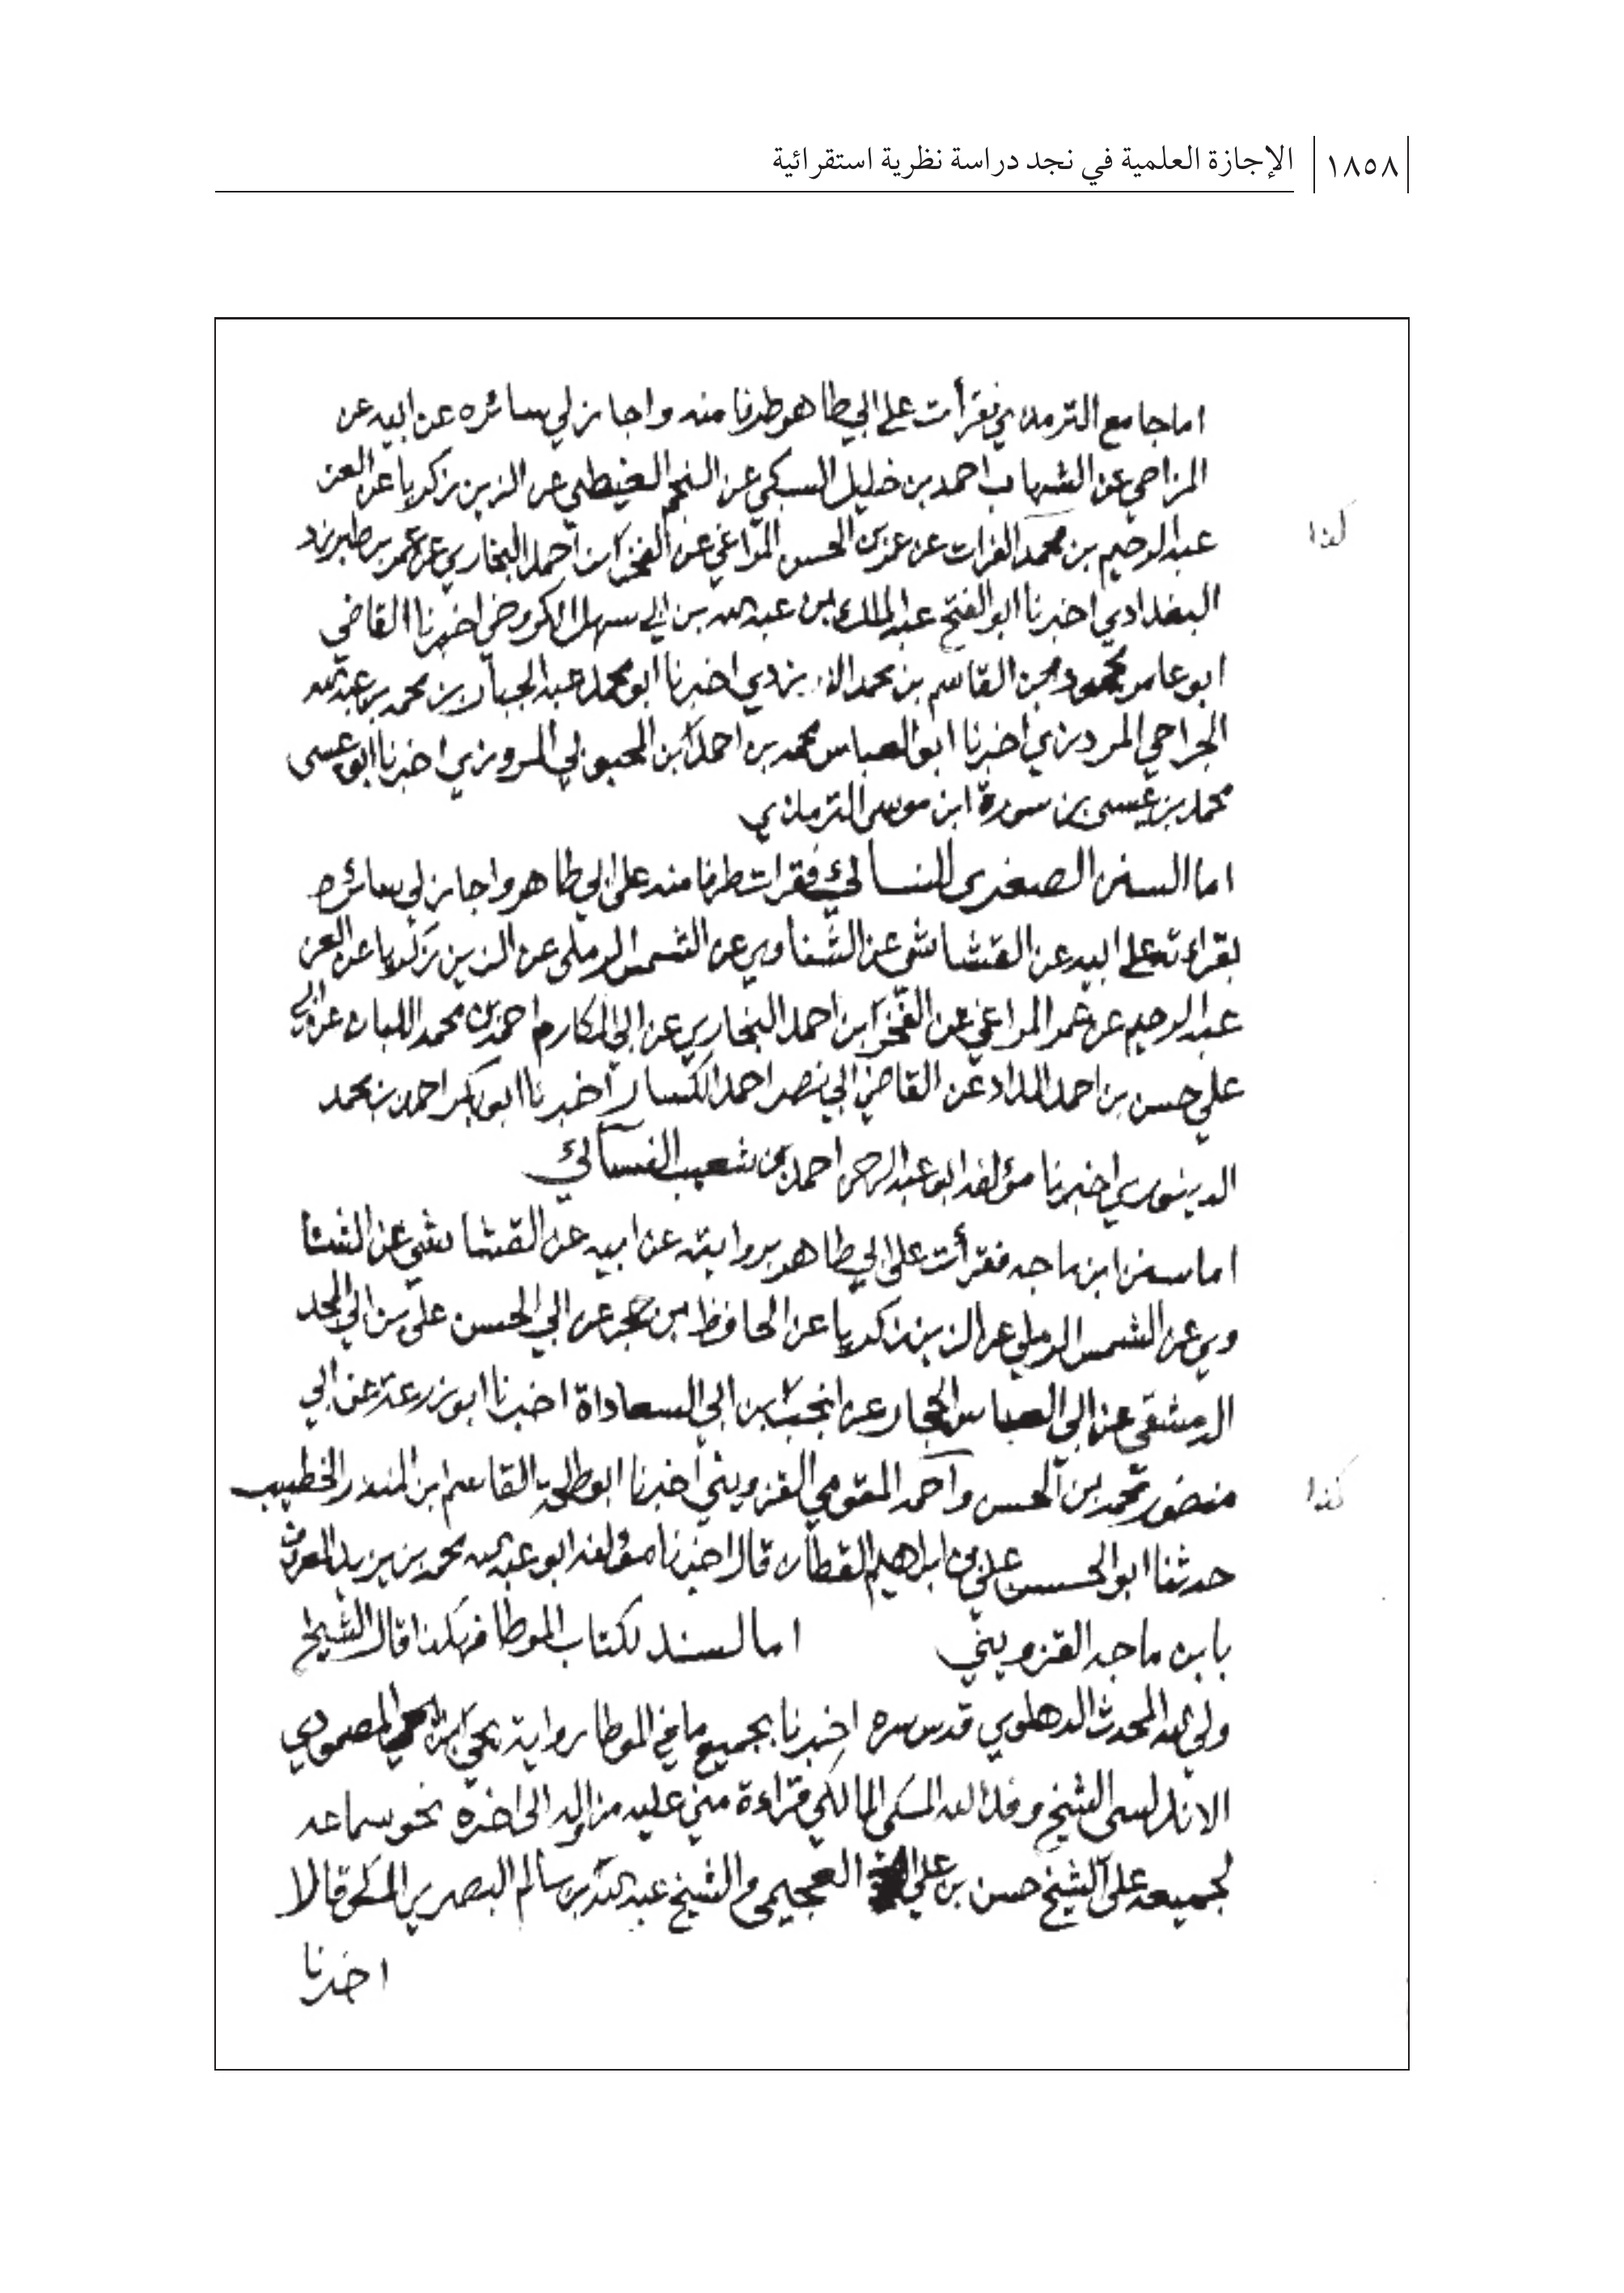 ١٨٥٨ الإجازة العلمية في نجد دراسة نظرية استقرائية
اما جامع الترمذي فقرأت على ابي طاهر طرفا منه واجاز لي سائره عن ابيه عن
المزاحي عن الشهاب احمد بن خليل السبكي عن النجم الغيطي عن الزين زكريا عن العز
عبد الرحيم بن محمد الفرات عن عمر بن الحسن المراغي عن الفخر ابن احمد البخاري عن عمر بن طبرزد
كذا
البغدادي اخبرنا ابو الفتح عبد الملك بن عبد الله بن ابي سهل الكروخي اخبرنا القاضي
ابو عامر محمود بن القاسم بن محمد الازدي اخبرنا ابو محمد عبد الجبار بن محمد بن عبد الله
الجراحي المروزي اخبرنا ابو العباس محمد بن احمد ابن المحبوبي المروزي اخبرنا ابو عيسى
محمد بن عيسى بن سورة ابن موسى الترمذي
اما السنن الصغرى للنسائي فقرات طرفا منه على ابي طاهر واجاز لي سائره
بقراءته على ابيه عن القشاشي عن الشناوي عن الشمس الرملي عن الزين زكريا عن العز
عبد الرحيم عن عمر المراغي عن الفخر ابن احمد البخاري عن ابي المكارم احمد بن محمد اللبان عن ابي
علي حسن بن احمد الحداد عن القاضي ابي نصر احمد الكسار اخبرنا ابو بكر احمد بن محمد
الدينوري اخبرنا مؤلفه ابو عبد الرحمن احمد بن شعيب النسائي
اما سنن ابن ماجه فقرأت على ابي طاهر بروايته عن ابيه عن القشاشي عن الشنا
وي عن الشمس الرملي عن الزين زكريا عن الحافظ ابن حجر عن ابي الحسن علي بن ابي المجد
الدمشقي عن ابي العباس الحجار عن انجب ابن ابي السعاداة اخبرنا ابو زرعة عن ابي
منصور محمد بن الحسن واحمد المقومي القزويني اخبرنا ابو طلحة القاسم ابن المنذر الخطيب
كذا
حدثنا ابو الحسن علي بن ابراهيم القطان قال اخبرنا مؤلفه ابو عبد الله محمد بن يزيد المعروف
بابن ماجه القزويني اما لسند لكتاب الموطا فهكذا قال الشيخ
ولي الله المحدث الدهلوي قدس سره اخبرنا بجميع ما في الموطا رواية يحي ابن يحي المصمودي
الاندلسي الشيخ وفد الله المكي المالكي قراءة مني عليه من اوله الى اخره نحو سماعه
لجميعه على الشيخ حسن بن علي العجيمي والشيخ عبد الله بن سالم البصري المكي قالا
اخبرنا